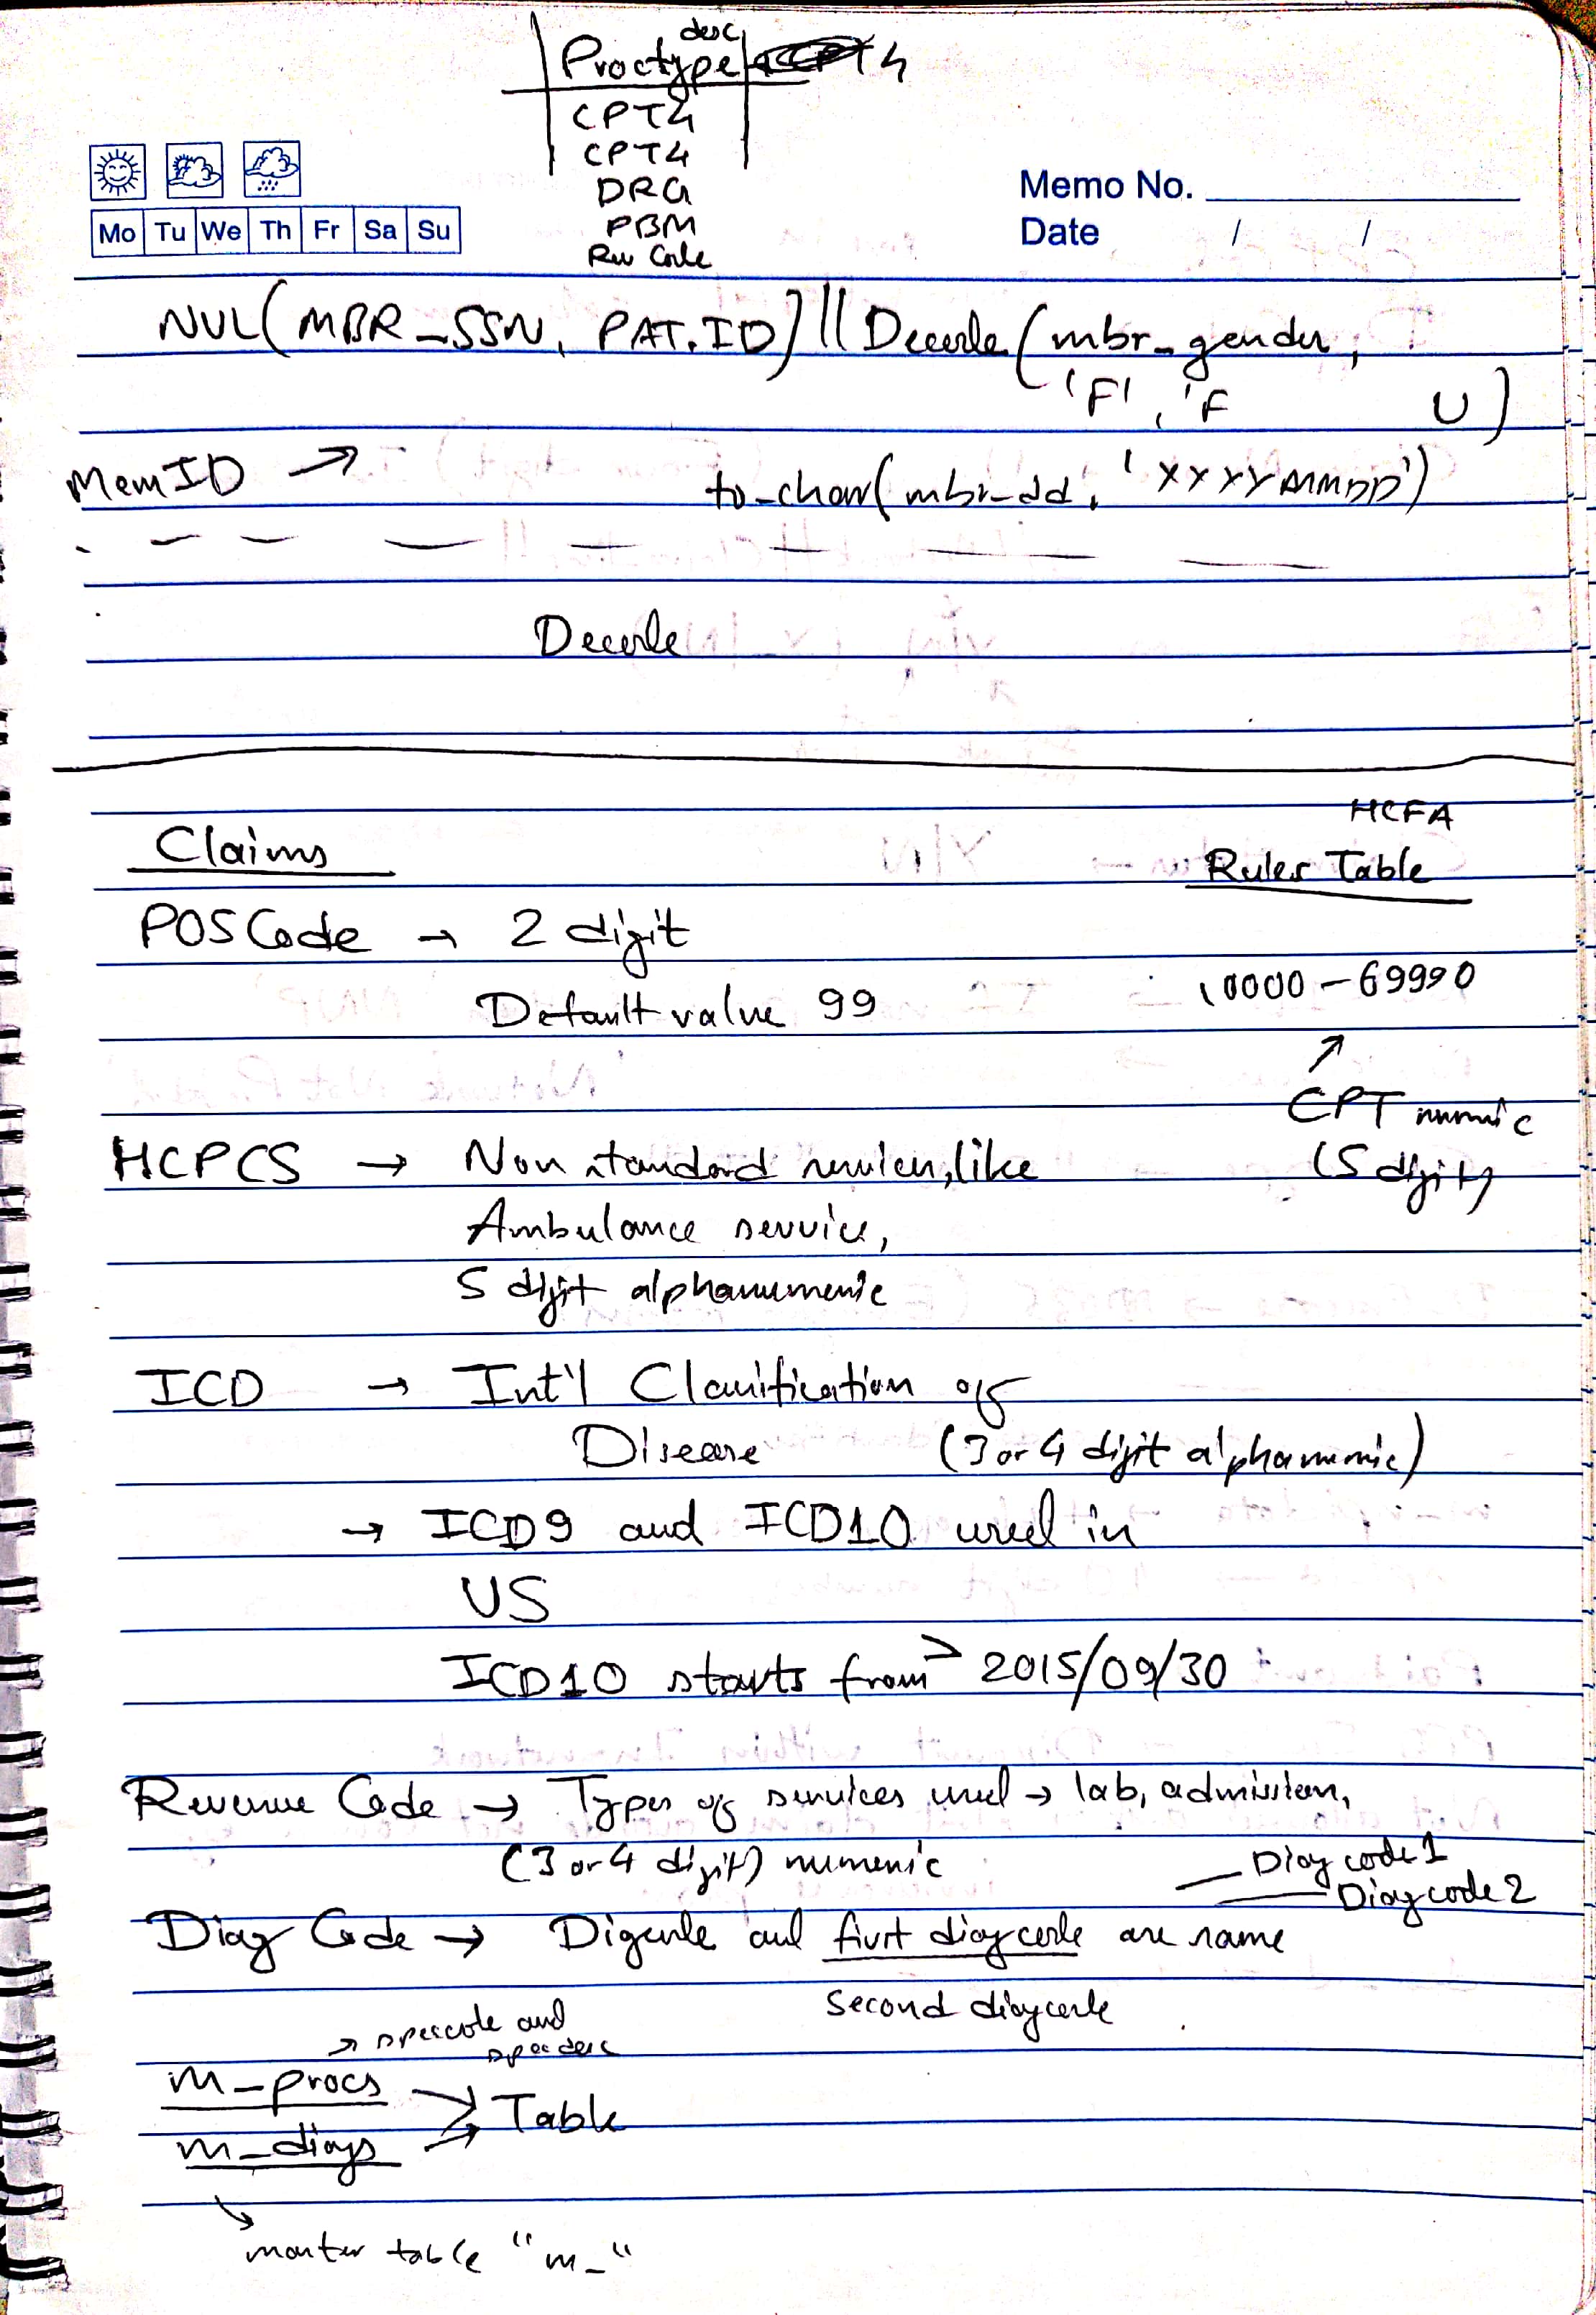 desc
Proctype
CPT4
CPT4
DRG
PBM
Rev Code
Memo No.
Date / /
Mo Tu We Th Fr Sa Su
NVL(MBR_SSN, PAT.ID) || Decode(mbr_gender,
'F', 'F U)
MemID → to_char(mbr_dd, 'XXYYMMDD')
Decode
HCFA
Claims Rules Table
POS Code → 2 digit
Default value 99 10000 - 69990
CPT numeric
HCPCS → Non standard services, like (5 digit)
Ambulance service,
5 digit alphanumeric
ICD → Int'l Classification of
Disease (3 or 4 digit alphanumeric)
→ ICD9 and ICD10 used in
US
ICD10 starts from > 2015/09/30
Revenue Code → Types of services used → lab, admission,
(3 or 4 digit) numeric
Diag code 1
Diag code 2
Diag Code → Digcode and first diagcode are same
second diagcode
→ speccode and
specdesc
m_procs
Table
m_diags
master table "m_"